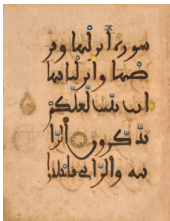 سورة أنزلناها وفر
ضناها وأنزلنا فيها
آيات بينات لعلكم
تذكرون الزا
نية والزاني فاجلدوا